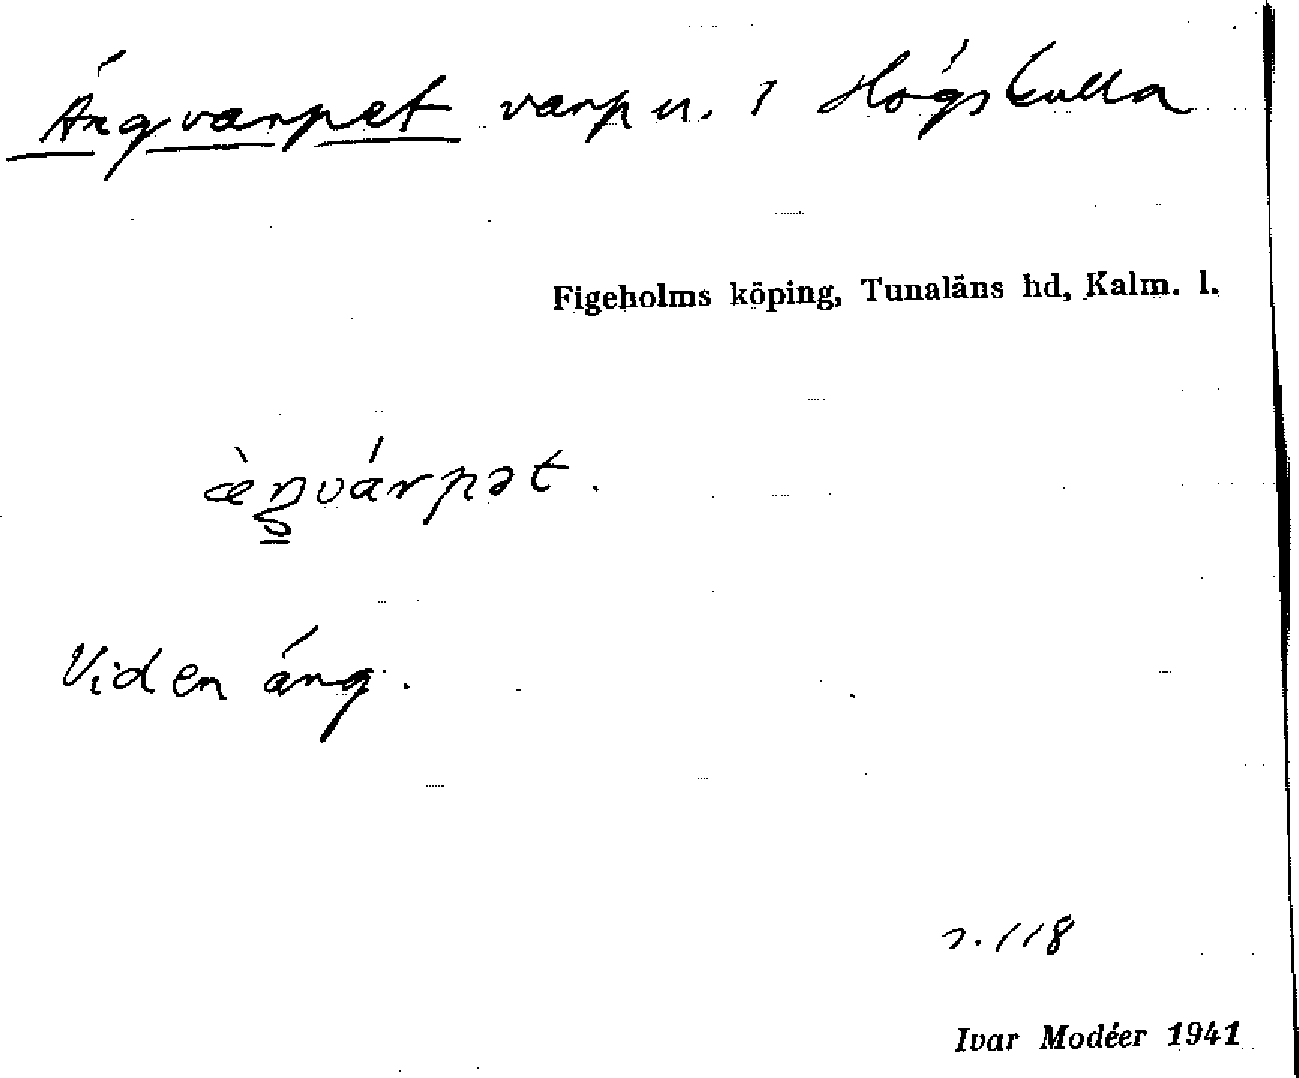 Ängvarpet varp u. 1 Högskulla
Figeholms köping, Tunaläns hd, Kalm. l.
æ̀ŋvárpət.
Vid en äng.
s. 118
Ivar Modéer 1941